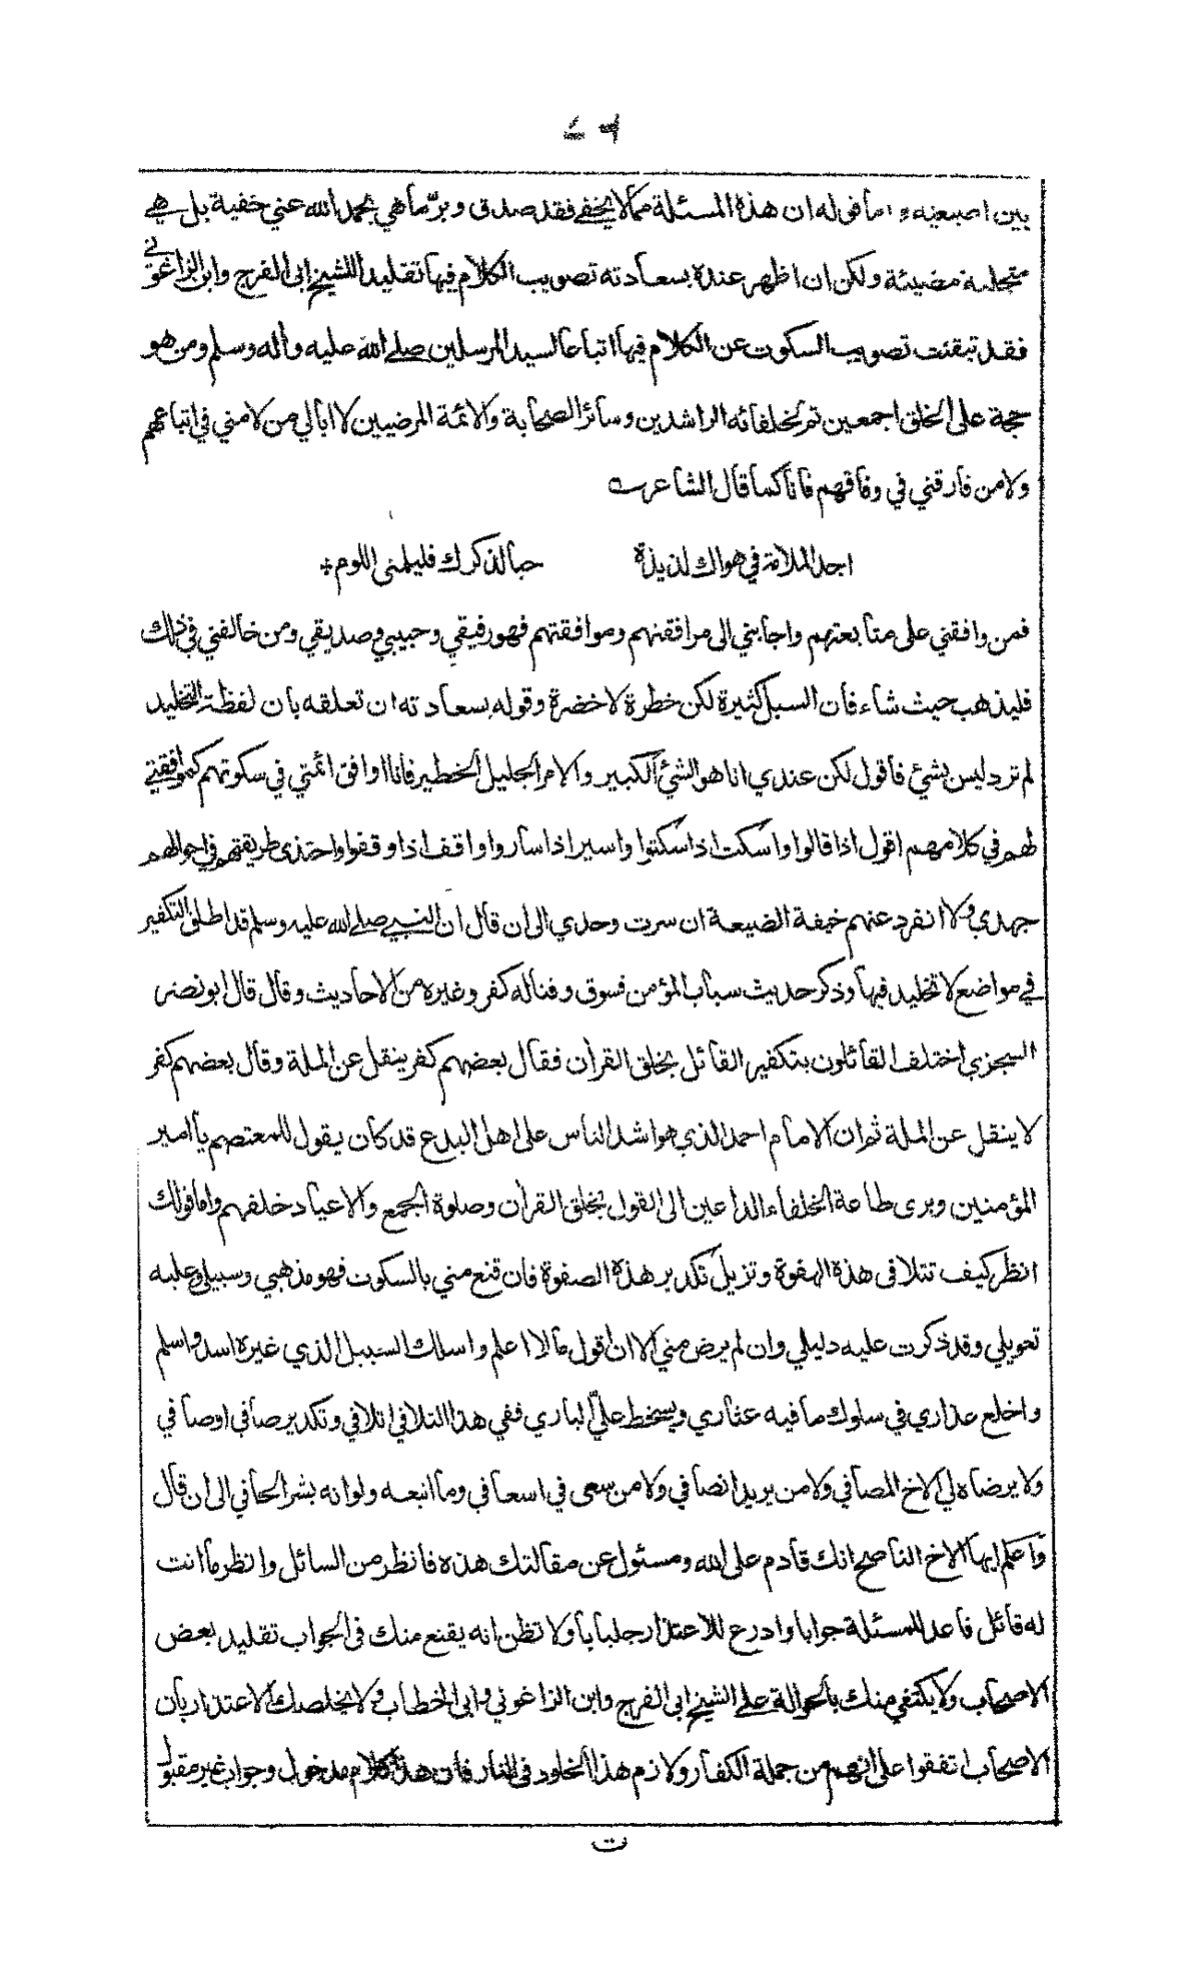 بين اصبعيه واما قوله ان هذه المسئلة مما لا يخفى فقد صدق وبر ما هي بحمد الله عني خفية بل هي
متجلية مضيئة ولكن ان اظهر عنده بسعادته تصويب الكلام فيها تقليدا للشيخ ابى الفرج وابن الزاغوني
فقد تيقنت تصويب السكوت عن الكلام فيها اتباعا لسيد المرسلين صلى الله عليه واله وسلم ومن هو
حجة على الخلق اجمعين ثم لخلفائه الراشدين وسائر الصحابة والائمة المرضيين لا ابالي من لامني في اتباعهم
ولا من فارقني في وفاقهم فانا كما قال الشاعر
اجد الملامة في هواك لذيذة حبا لذكرك فليلمنى اللوم
فمن وافقني على متابعتهم واجابني الى مرافقتهم وموافقتهم فهو رفيقي وحبيبي وصديقي ومن خالفني في ذلك
فليذهب حيث شاء فان السبل كثيرة لكن خطرة لا خضرة وقوله بسعادته ان تعلقه بان لفظة التخليد
لم ترد ليس بشئ فاقول لكن عندي انا هو الشئ الكبير والامر الجليل الخطير فانا اوافق ائمتي في سكوتهم كموافقتي
لهم في كلامهم اقول اذا قالوا واسكت اذا سكتوا واسير اذا ساروا واقف اذا وقفوا واحتذى طريقتهم في احوالهم
جهدي ولا انفرد عنهم خيفة الضيعة ان سرت وحدي الى ان قال ان النبي صلى الله عليه وسلم قد اطلق التكفير
في مواضع لا تخليد فيها وذكر حديث سباب المؤمن فسوق وقتاله كفر وغيره من الاحاديث وقال قال ابو نصر
السجزي اختلف القائلون بتكفير القائل بخلق القران فقال بعضهم كفر ينقل عن الملة وقال بعضهم كفر
لا ينقل عن الملة ثم ان الامام احمد الذي هو اشد الناس على اهل البدع قد كان يقول للمعتصم يا امير
المؤمنين ويرى طاعة الخلفاء الداعين الى القول بخلق القران وصلوة الجمع والاعياد خلفهم واما قولك
انظر كيف تتلافى هذه الهفوة وتزيل تكدير هذه الصفوة فان قنع مني بالسكوت فهو مذهبي وسبيلي وعليه
تعويلي وقد ذكرت عليه دليلي وان لم يرض مني الا ان اقول مالا اعلم واسلك السبيل الذي غيره اسد واسلم
واخلع عذاري في سلوك ما فيه عثاري ويسخط علي الباري ففي هذا التلافي اتلافي وتكدير صافي اوصافي
ولا يرضاه لي الاخ المصافي ولا من يريد انصافي ولا من سعى في اسعافي وما اتبعه ولو انه بشر الحافي الى ان قال
واعلم ايها الاخ الناصح انك قادم على الله ومسئول عن مقالتك هذه فانظر من السائل وانظر ما انت
له قائل فاعد للمسئلة جوابا وادرع للاعتذار جلبابا ولا تظن انه يقنع منك في الجواب تقليد بعض
الاصحاب ولا يكتفي منك بالحوالة على الشيخ ابى الفرج وابن الزاغوني وابى الخطاب ولا يخلصك الاعتذار بان
الاصحاب اتفقوا على انهم من جملة الكفار ولازم هذا الخلود فى النار فان هذا كلام مدخول وجواب غير مقبول
ت